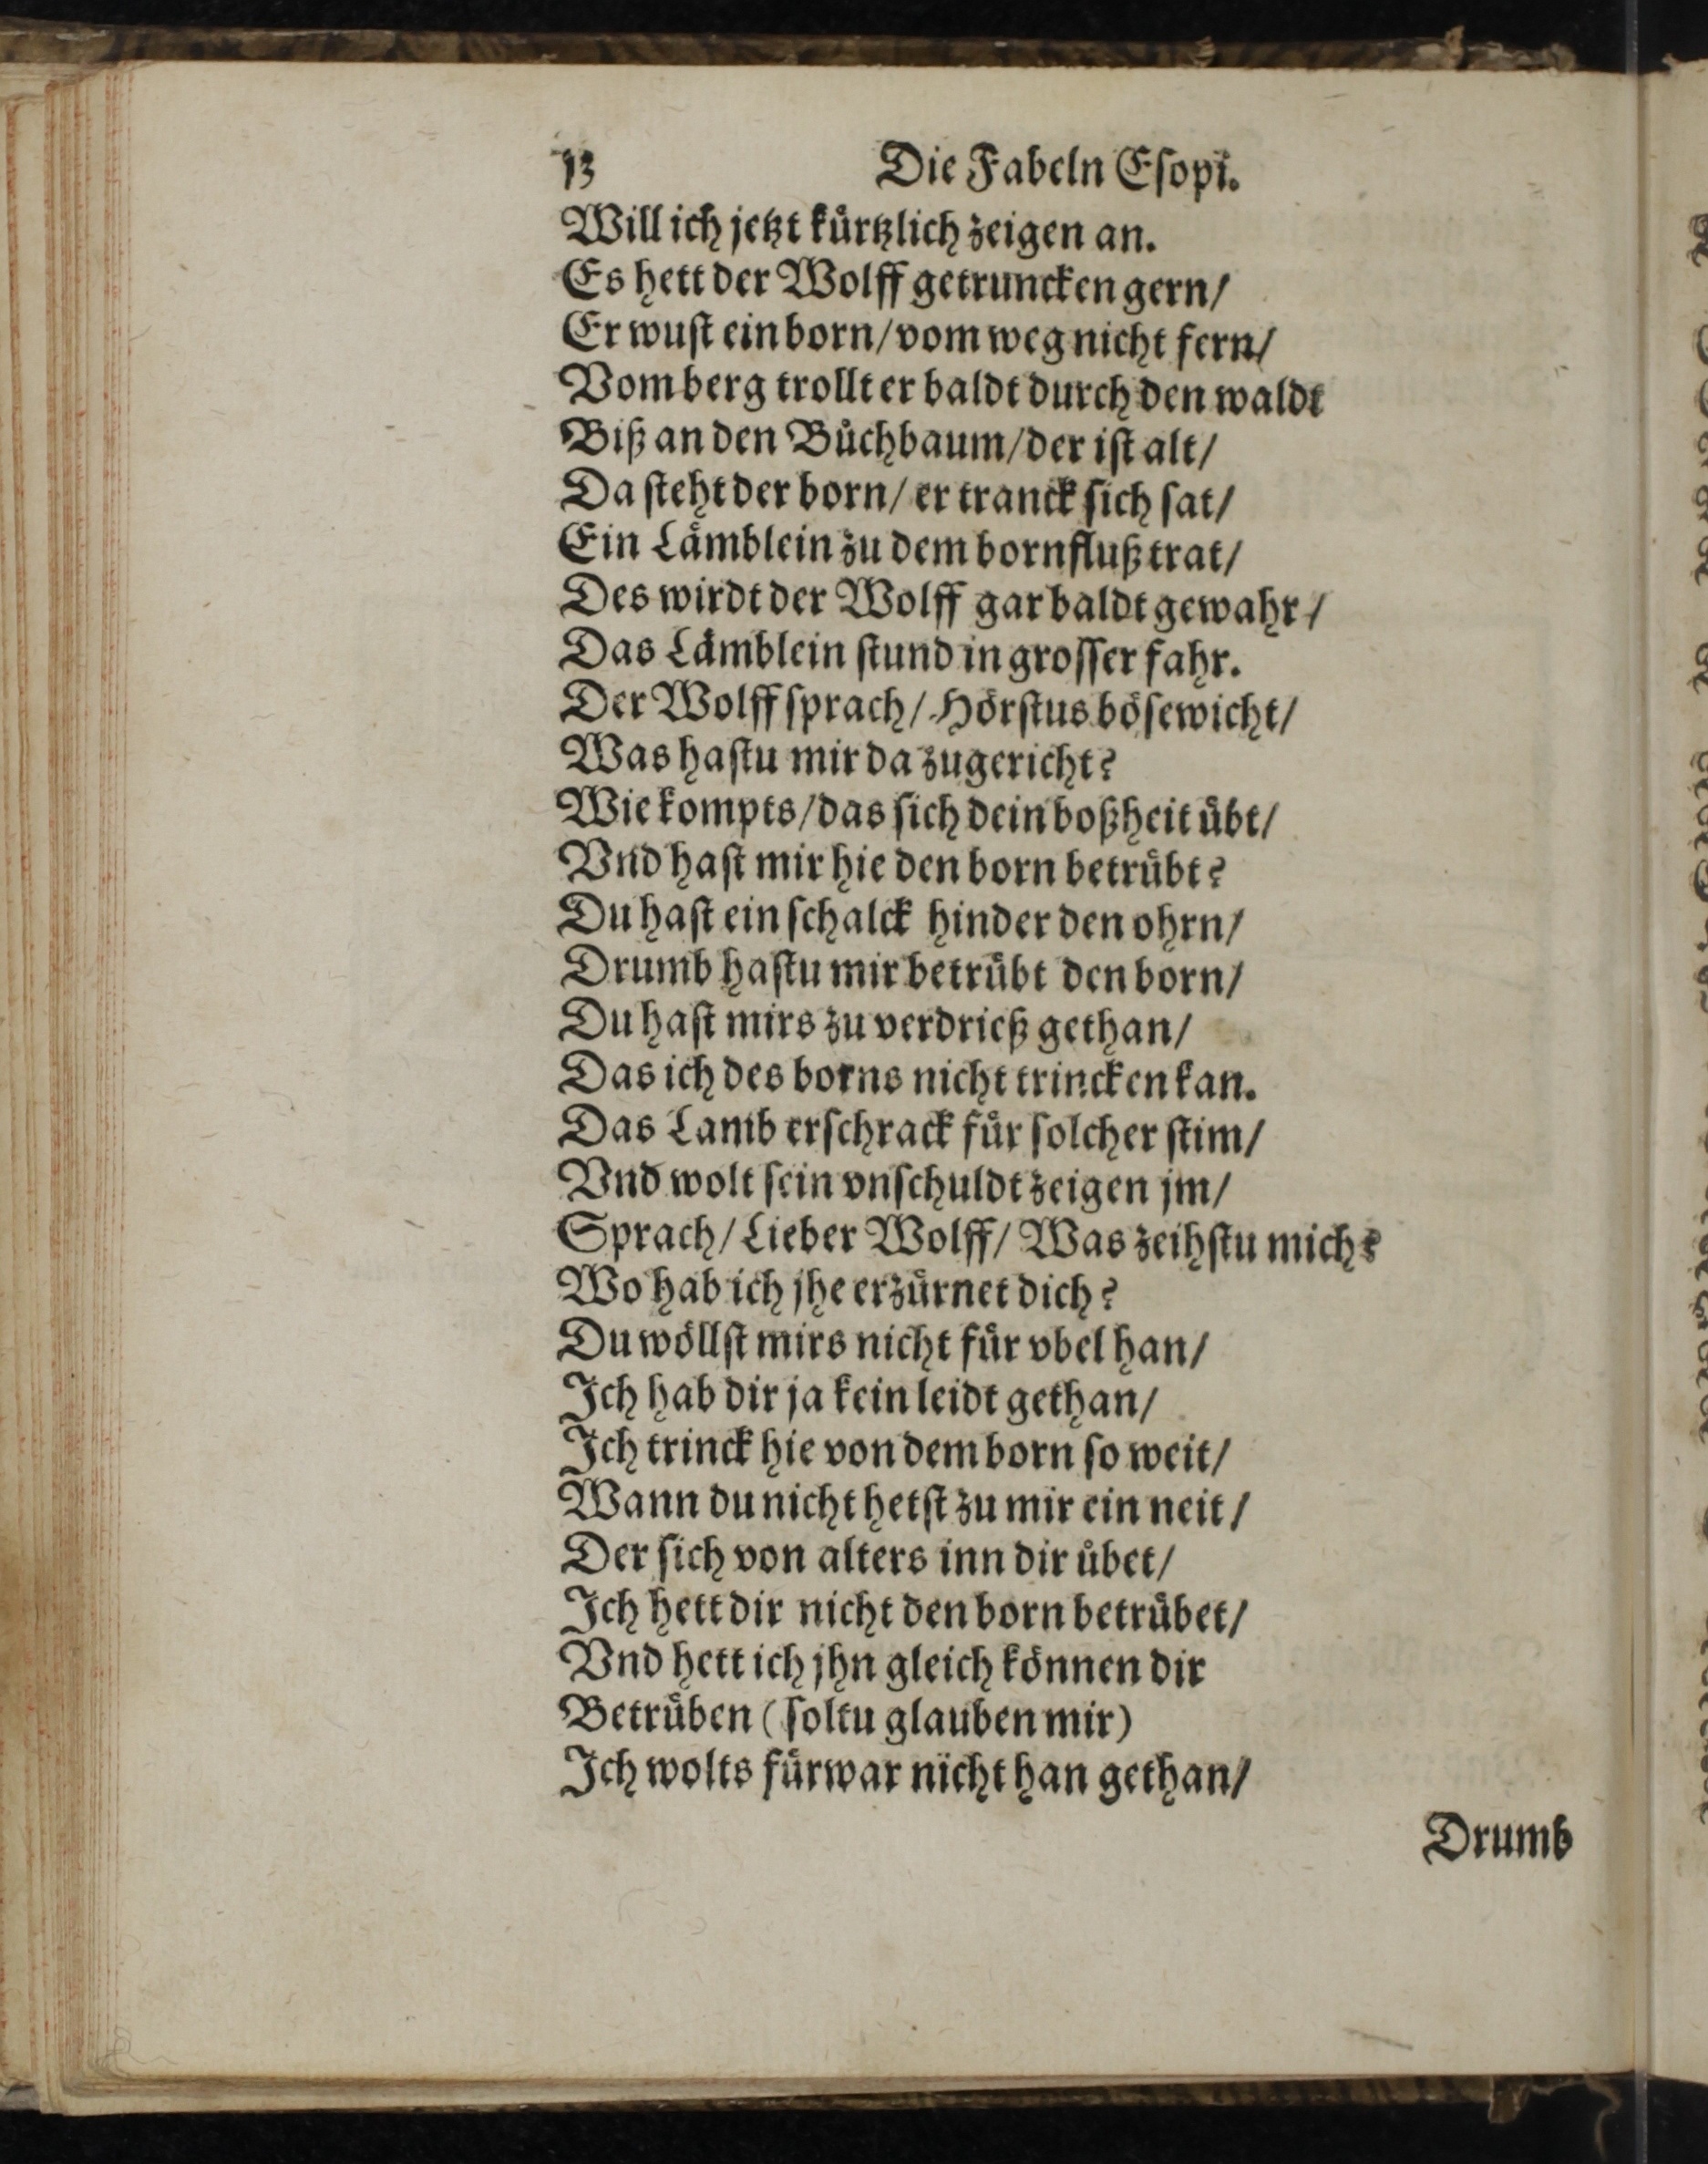 13 Die Fabeln Eſopi.
Will ich jetzt kuͤrtzlich zeigen an.
Es hett der Wolff getruncken gern/
Er wuſt ein born/ vom weg nicht fern/
Vom berg trollt er baldt durch den waldt
Biß an den Buͤchbaum/ der iſt alt/
Da ſteht der born/ er tranck ſich ſat/
Ein Laͤmblein zu dem bornfluß trat/
Des wirdt der Wolff gar baldt gewahr/
Das Laͤmblein ſtund in groſſer fahr.
Der Wolff ſprach/ Hoͤrſtus boͤſewicht/
Was haſtu mir da zugericht?
Wie kompts/ das ſich dein boßheit uͤbt/
Vnd haſt mir hie den born betruͤbt?
Du haſt ein ſchalck hinder den ohrn/
Drumb haſtu mir betruͤbt den born/
Du haſt mirs zu verdrieß gethan/
Das ich des borns nicht trincken kan.
Das Lamb erſchrack fuͤr ſolcher ſtim/
Vnd wolt ſein vnſchuldt zeigen jm/
Sprach/ Lieber Wolff/ Was zeihſtu mich?
Wo hab ich jhe erzuͤrnet dich?
Du woͤllſt mirs nicht fuͤr vbel han/
Ich hab dir ja kein leidt gethan/
Ich trinck hie von dem born ſo weit/
Wann du nicht hetſt zu mir ein neit/
Der ſich von alters inn dir uͤbet/
Ich hett dir nicht den born betruͤbet/
Vnd hett ich jhn gleich koͤnnen dir
Betruͤben (ſoltu glauben mir)
Ich wolts fuͤrwar nicht han gethan/
Drumb